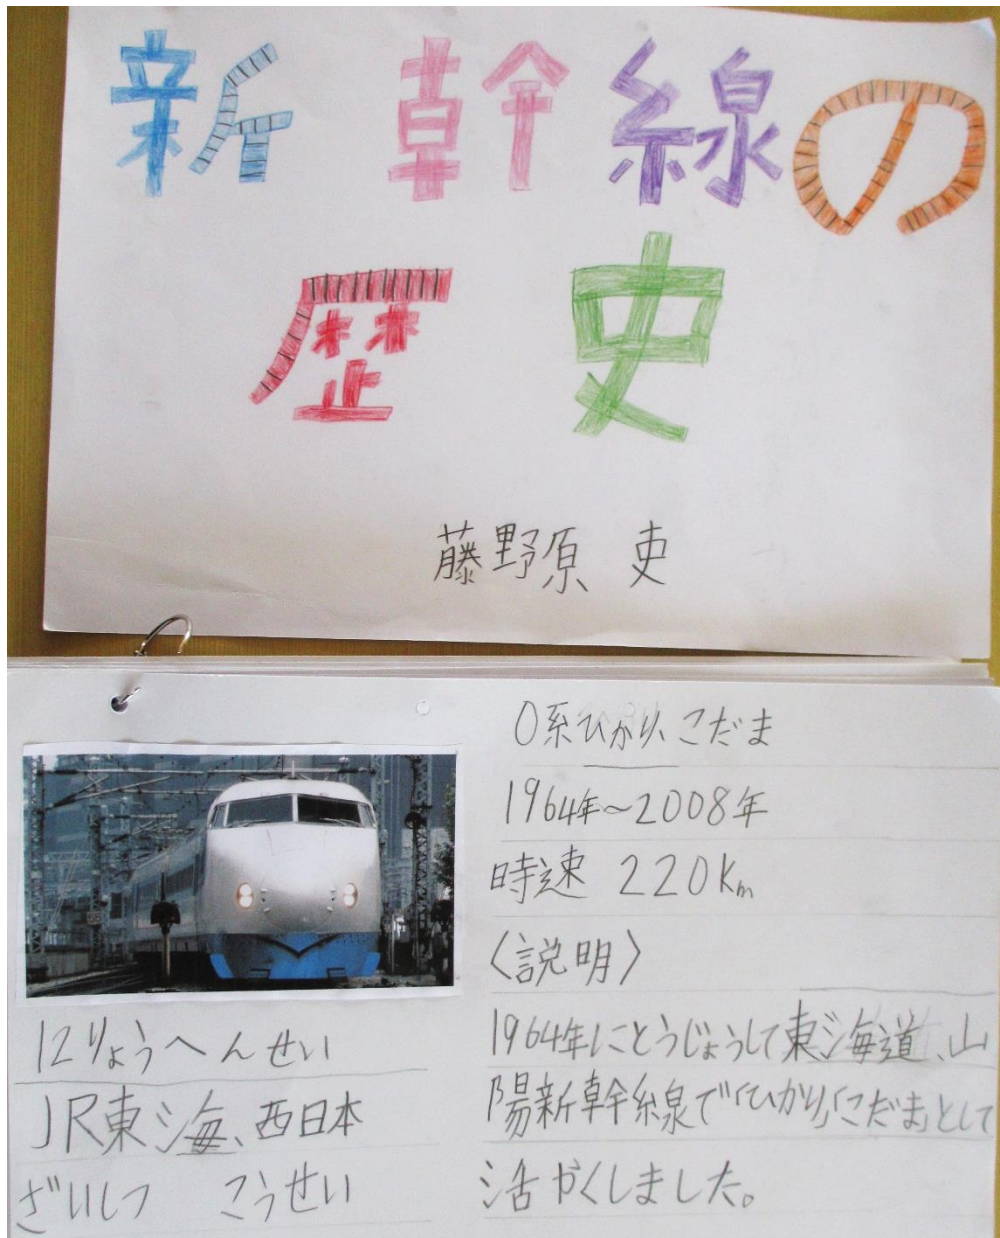 新幹線の
歴史
藤野原 吏
0系ひかり、こだま
1964年～2008年
時速 220km
〈説明〉
1964年にとうじょうして東海道、山
陽新幹線で「ひかり」「こだま」として
活やくしました。
12りょうへんせい
JR東海、西日本
ざいしつ こうせい